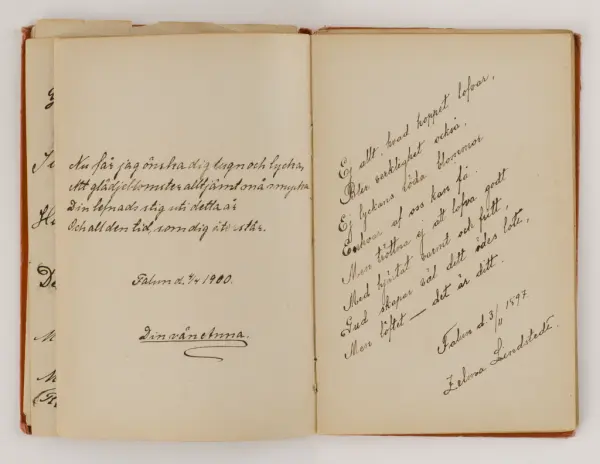 Nu får jag önska dig lugn och lycka,
Att glädjeblomster alltjämt må smycka
Din lefnads stig uti detta år
Och all den tid, som dig åter står.
Falun d. 4/4 1900.
Din vän Anna.
Ej allt hvad hoppet lofvar,
Blir verklighet också.
Ej lyckans röda blommor
Enhvar af oss kan få.
Men tröttna ej att lofva godt
Med hjärtat varmt och fritt,
Gud skapar väl ditt ödes lott,
Men löftet — det är ditt.
Falun d. 3/11 1897.
Lindstedt.